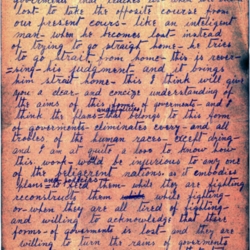 government that teaches us what are
lost to take the opposite course from
our present course. like an inteligent
man - when he becomes lost instead
of trying to go straight home - he tries
to go strait from home - this is rever-
sing his judgment and it brings
him strait home. this I think will give
you a clear - and concise understanding of
the aims of this form of goverments - and I
think the plans that belongs to this form
of goverments - eliminates every - and all
trobles of the human races - except dying -
and I am at quite a loss to know how
this work - would be injurious to any one
of the peligerent nations. as it embodies
plans to feed them - while they are fighting
reconstructs them while fighting -
or - when they are all tired of fighting -
and willing to acknowledge that their
forms - of goverments is lost - and they are
willing to turn the reins of goverments